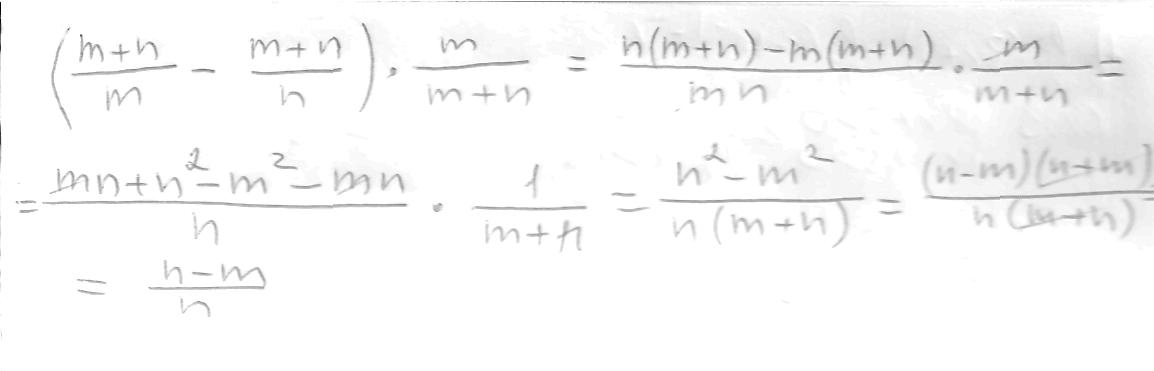 (\frac{m+n}{m} - \frac{m+n}{n}) \cdot \frac{m}{m+n} = \frac{n(m+n)-m(m+n)}{mn} \cdot \frac{m}{m+n} =
= \frac{mn+n^2-m^2-mn}{n} \cdot \frac{1}{m+n} = \frac{n^2-m^2}{n(m+n)} = \frac{(n-m)(n+m)}{n(m+n)}
= \frac{n-m}{n}